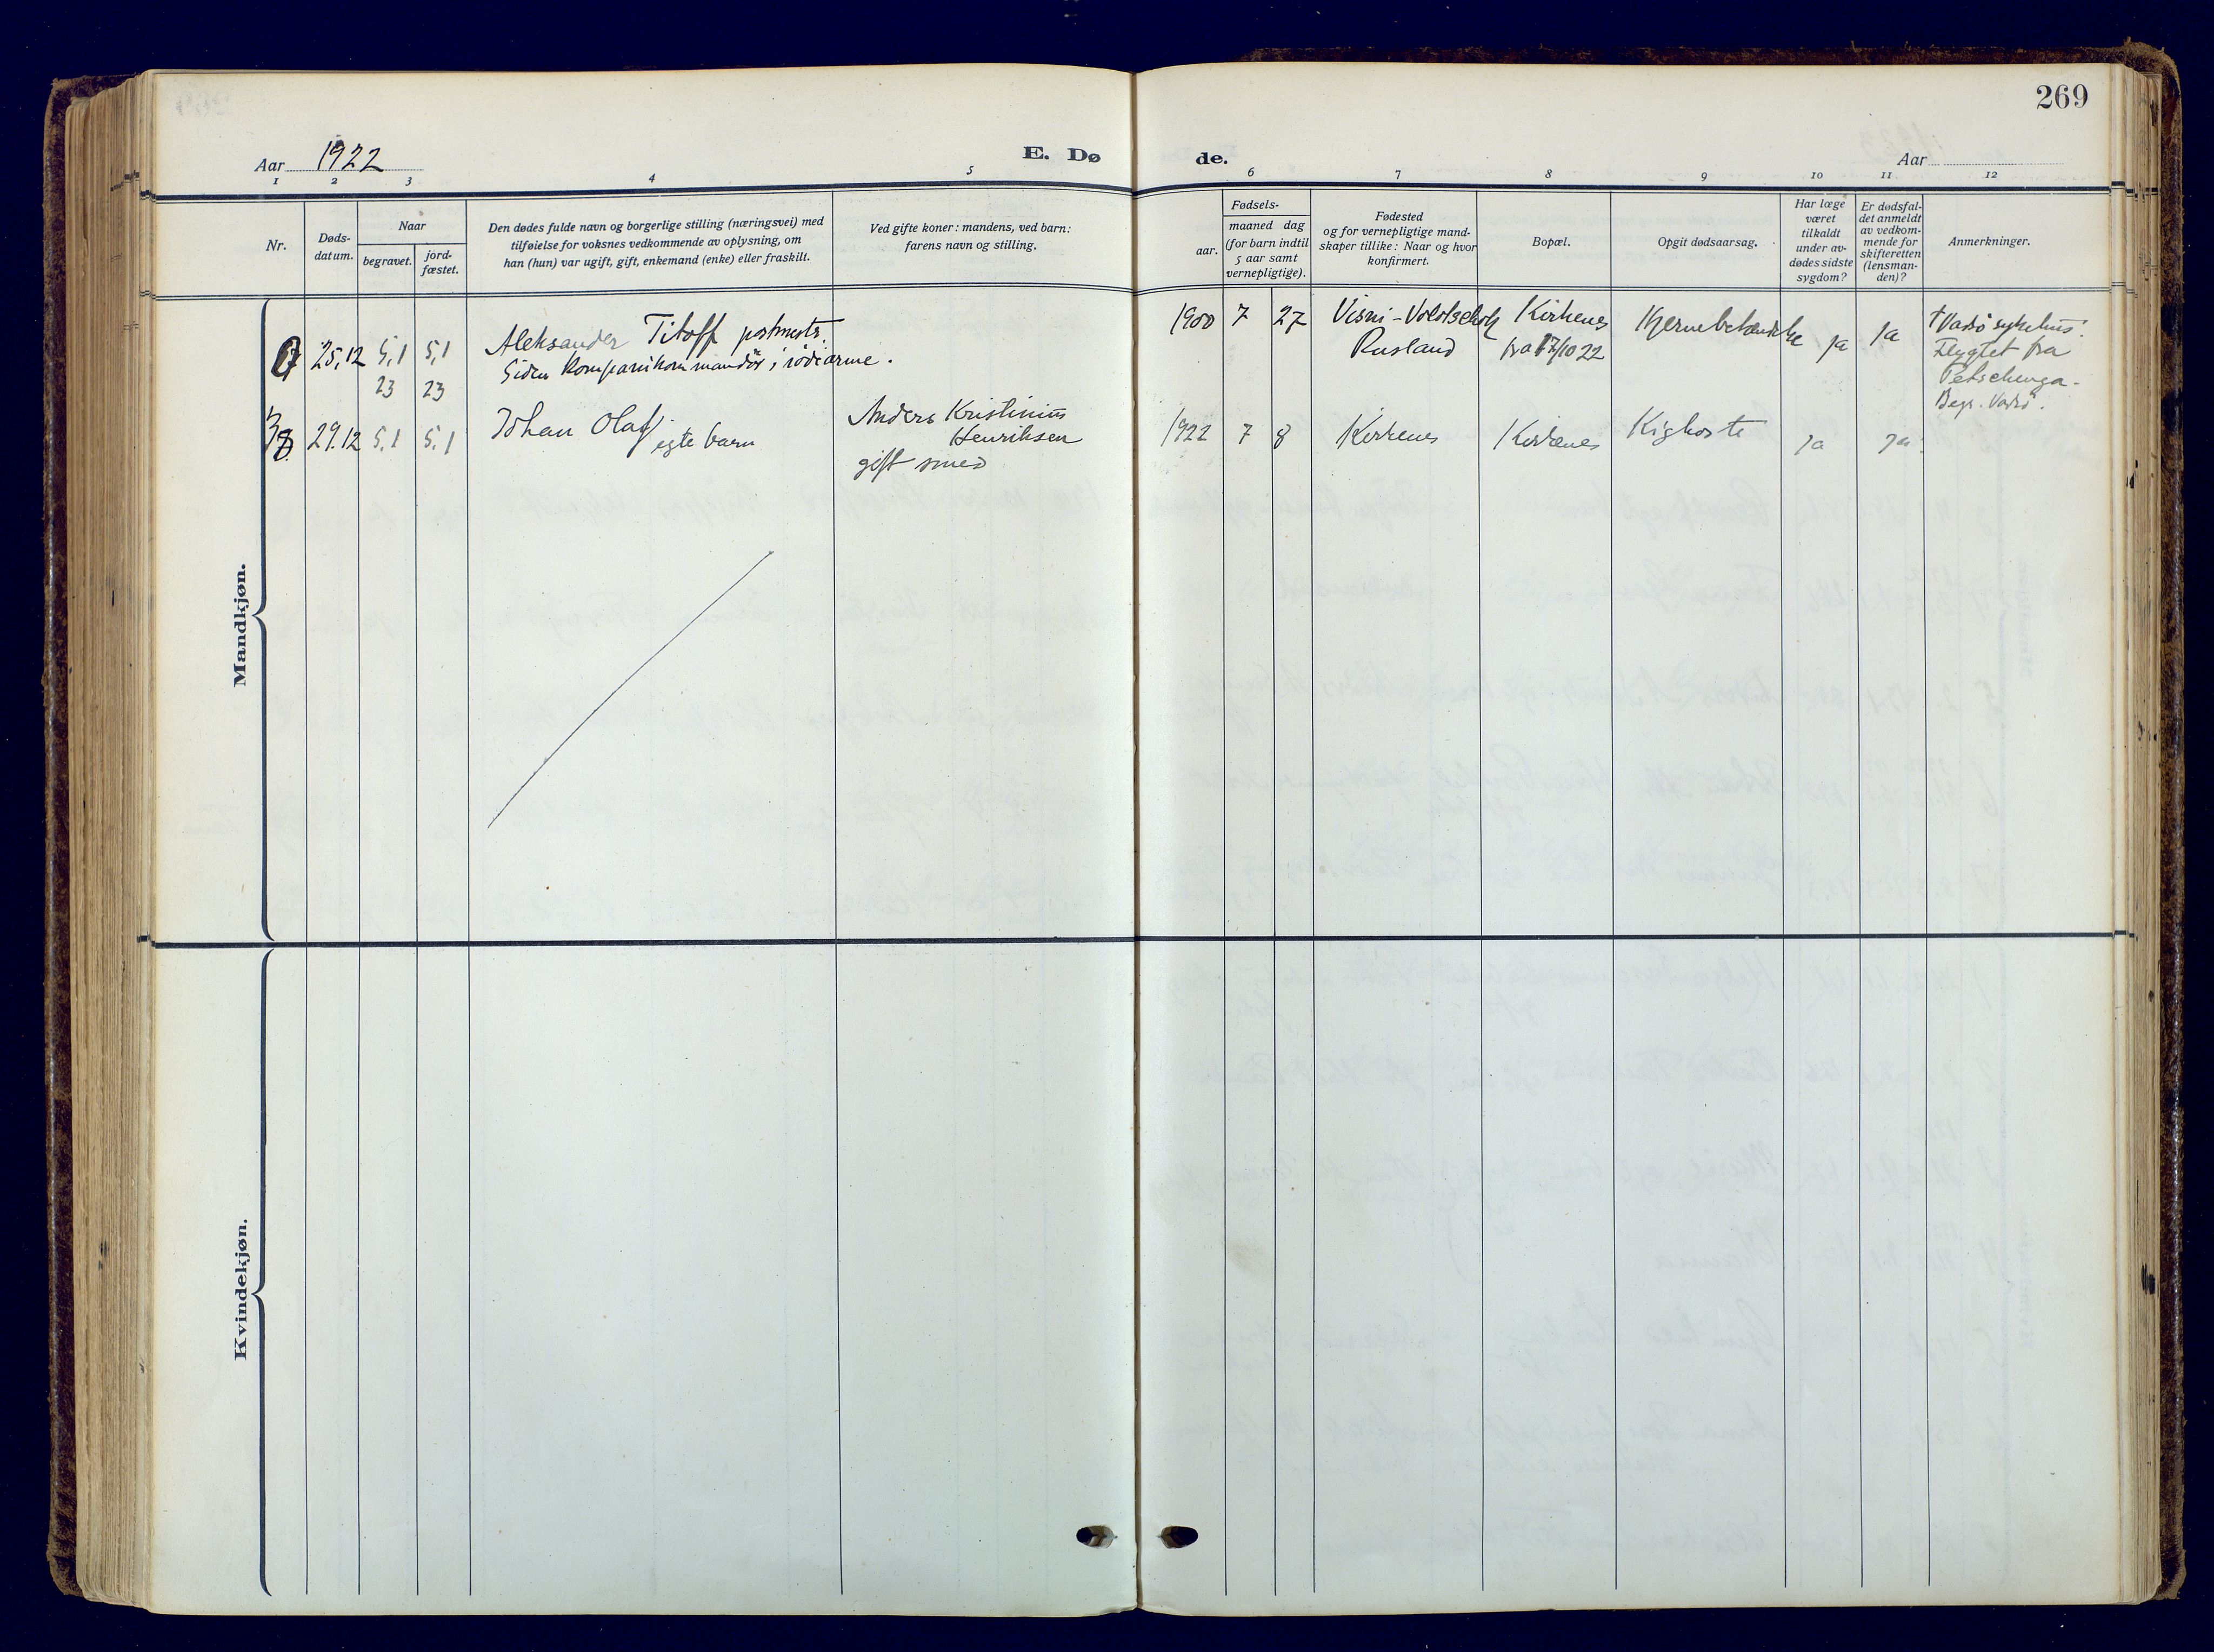 269
Aar 1922
E. Dø
de.
Aar
1 2 3 4 5 6 7 8 9 10 11 12
Nr.
Døds-
datum.
Naar
begravet.
jord-
fæstet.
Den dødes fulde navn og borgerlige stilling (næringsvei) med
tilføielse for voksnes vedkommende av oplysning, om
han (hun) var ugift, gift, enkemand (enke) eller fraskilt.
Ved gifte koner: mandens, ved barn:
farens navn og stilling.
Fødsels-
aar.
maaned dag
(for barn indtil
5 aar samt
vernepligtige).
Fødested
og for vernepligtige mand-
skaper tillike: Naar og hvor
konfirmert.
Bopæl.
Opgit dødsaarsag.
Har læge
været
tilkaldt
under av-
dødes sidste
sygdom?
Er dødsfal-
det anmeldt
av vedkom-
mende for
skifteretten
(lensman-
den)?
Anmerkninger.
Mandkjøn.
25,12 5,1 5,1
23 23
Aleksander Titoff postmestr.
Siden kompanikommandør i rødearme.
1900 7 27
Visni-Volotschok
Rusland
Kirkenes
fra 17/10 22
Hjernebetændelse
ja
ja
† Vadsö sykehus.
Flygtet fra
Petschenga.
Begr. Vadsö.
8 29.12 5,1 5,1
Johan Olaf, egte barn
Anders Kristinius
Henriksen
gift smed
1922 7 8
Kirkenes
Kirkenes
Kighoste
ja
ja.
Kvindekjøn.